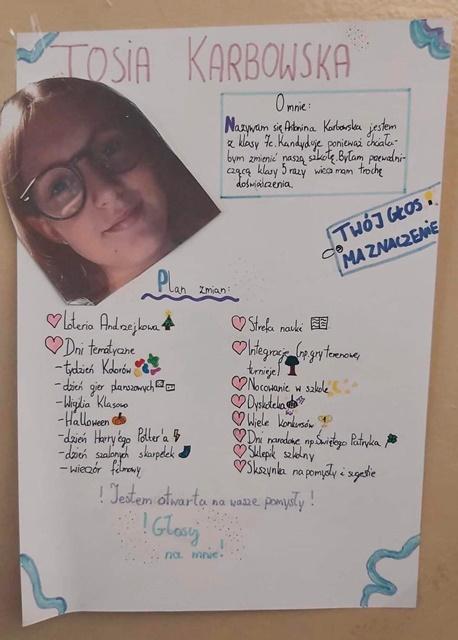 TOSIA KARBOWSKA
O mnie:
Nazywam się Antonina Karbowska jestem
z klasy 7c. Kandyduję ponieważ chciała-
bym zmienić naszą szkołę. Byłam przewodni-
czącą klasy 5 razy więc mam trochę
doświadczenia.
TWÓJ GŁOS
MA ZNACZENIE
Plan zmian:
Loteria Andrzejkowa
Dni tematyczne
- tydzień Kolorów
- dzień gier planszowych
- Wigilia Klasowa
- Halloween
- dzień Harry'ego Potter'a
- dzień szalonych skarpetek
- wieczór filmowy
Strefa nauki
Integracje (np. gry terenowe,
turnieje)
Nocowanie w szkole
Dyskoteka
Wiele konkursów
Dni narodowe np. Świętego Patryka
Sklepik szkolny
Skrzynka na pomysły i sugestie
! Jestem otwarta na wasze pomysły !
! Głosuj
na mnie!